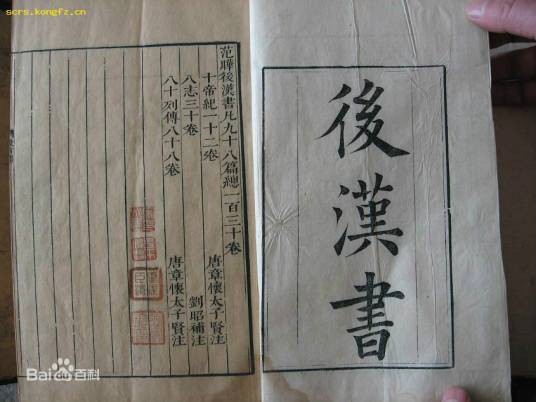 scrs.kongfz.cn
後漢書
范曄後漢書凡九十八篇總一百三十卷
十帝紀一十二卷 唐章懷太子賢注
八志三十卷 劉昭補注
八十列傳八十八卷 唐章懷太子賢注
Bai度百科